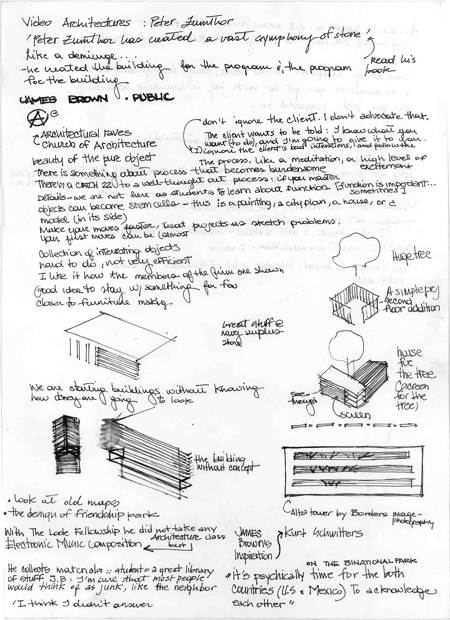 Video Architectures : Peter Zumthor
'Peter Zumthor has created a vast symphony of stone'
Like a demiurge...
-he created the building for the program & the program
for the building
Read his
book
JAMES BROWN • PUBLIC
Architectural raves
Church of Architecture
beauty of the pure object
don't ignore the client. I don't advocate that.
The client wants to be told: I know what you
want (to do), and I'm going to give it to you.
ignore the client's bad intentions, and follow the
The process, like a meditation, a high level of
excitement
There is something about process that becomes burdensome
There's a catch 22 to a well-thought out process: if you master
Details - we are not here as students to learn about function [function is important...
sometimes]
objects can become stem cells - this is a painting, a city plan, a house, or a
model (in its side)
Make your moves faster, treat projects as sketch problems.
Your first moves can be (almost
Collection of interesting objects
hard to do, not very efficient
I like it how the members of the firm are shown
Good idea to stay w/ something for few
closer to furniture making.
Huge tree
A simple
second
floor addition
Great stuff @
navy surplus
store
house
for
the tree
(screen
for the
tree)
see
through
screen
We are starting buildings without knowing
how they are going to look
the building
without concept
• look at old maps
• the design of friendship park
Alto tower by Borders image-
photography
With The Loeb Fellowship he did not take any
Architecture class
but
Electronic Music Composition
JAMES
BROWN'S
Inspiration
Kurt Schwitters
He collects materials :: student = a great library
of stuff J.B: I'm sure that most people
would think of as junk, like the neighbor
'I think I didn't answer
ON THE BINATIONAL PARK
• "It's psychically time for the both
countries (US & Mexico) To acknowledge
each other"